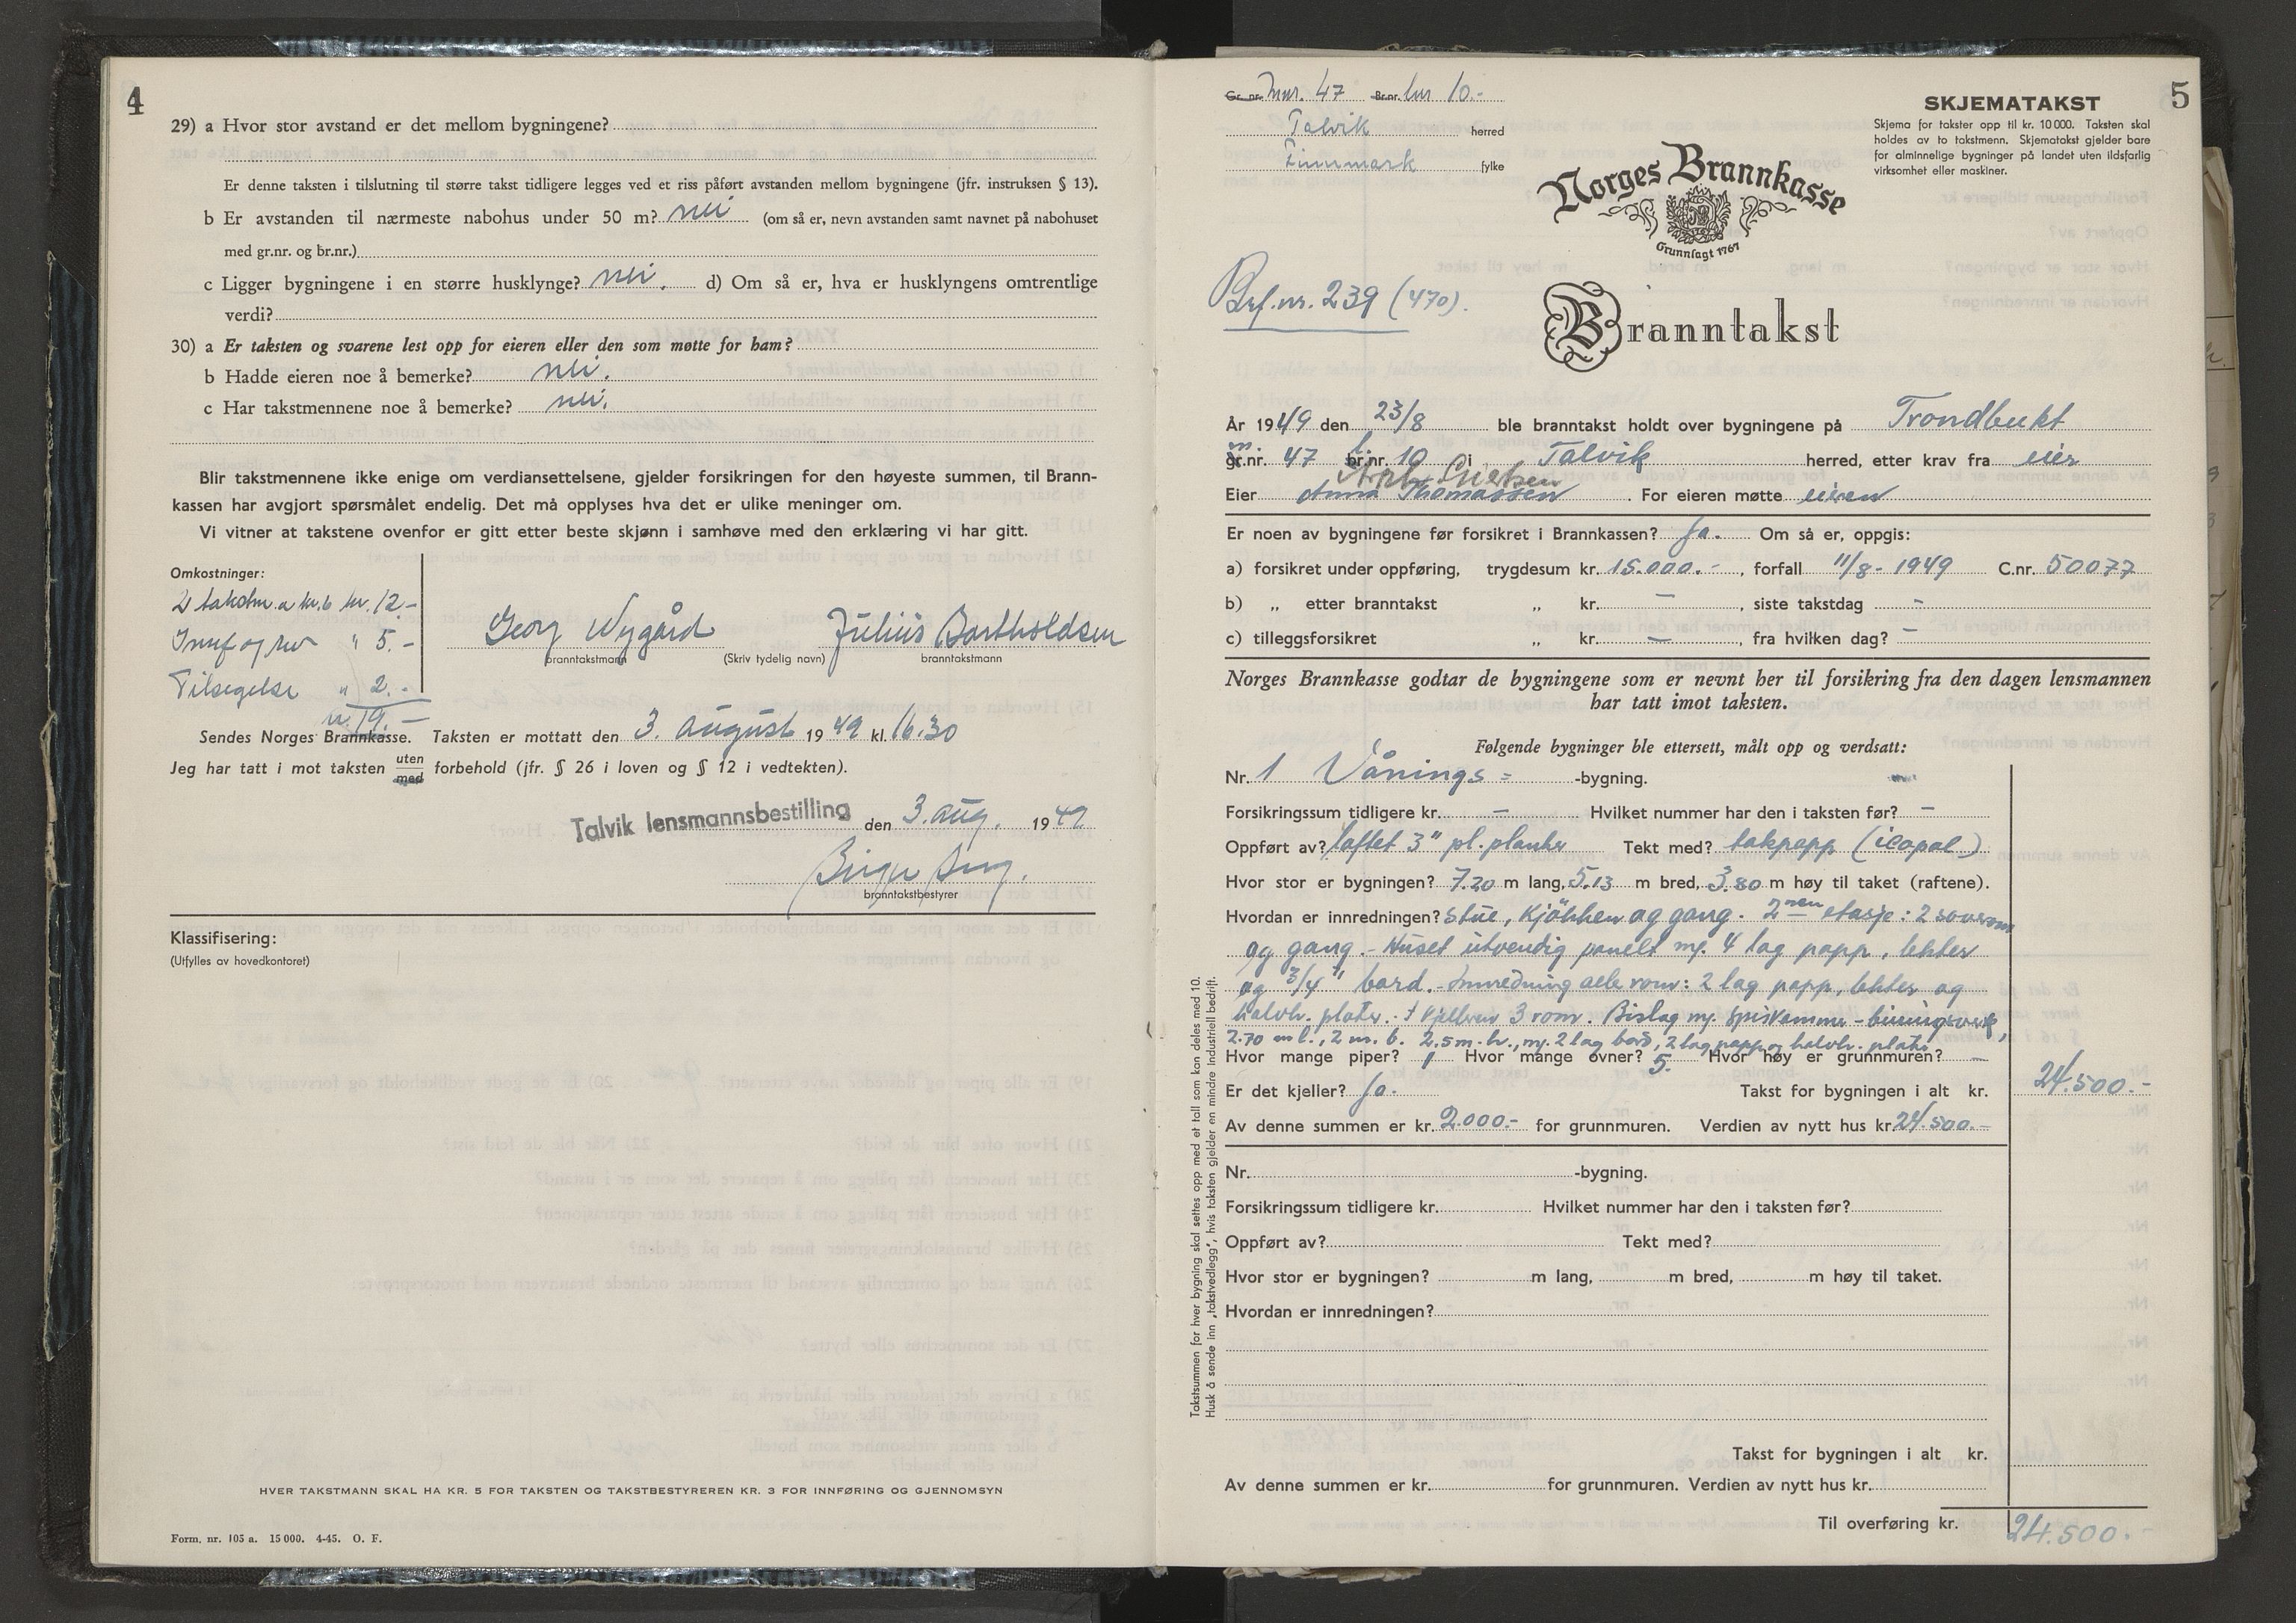 4
29) a Hvor stor avstand er det mellom bygningene?
Er denne taksten i tilslutning til større takst tidligere legges ved et riss påført avstanden mellom bygningene (jfr. instruksen § 13).
b Er avstanden til nærmeste nabohus under 50 m? nei (om så er, nevn avstanden samt navnet på nabohuset
med gr.nr. og br.nr.)
c Ligger bygningene i en større husklynge? nei. d) Om så er, hva er husklyngens omtrentlige
verdi?
30) a Er taksten og svarene lest opp for eieren eller den som møtte for ham?
b Hadde eieren noe å bemerke? nei.
c Har takstmennene noe å bemerke? nei.
Blir takstmennene ikke enige om verdiansettelsene, gjelder forsikringen for den høyeste summen, til Brann-
kassen har avgjort spørsmålet endelig. Det må opplyses hva det er ulike meninger om.
Vi vitner at takstene ovenfor er gitt etter beste skjønn i samhøve med den erklæring vi har gitt.
Omkostninger:
2 takstm. a kr. 6 kr. 12.-
Innf og rev " 5.-
Tilsigelse " 2.-
kr. 19.-
Georg Nygård Julius Bartholdsen
branntakstmann (Skriv tydelig navn) branntakstmann
Sendes Norges Brannkasse. Taksten er mottatt den 3. august 1949 kl. 16.30
Jeg har tatt i mot taksten uten med forbehold (jfr. § 26 i loven og § 12 i vedtekten).
Talvik lensmannsbestilling den 3. aug. 1949
Birger Berg.
branntakstbestyrer
Klassifisering:
(Utfylles av hovedkontoret)
HVER TAKSTMANN SKAL HA KR. 5 FOR TAKSTEN OG TAKSTBESTYREREN KR. 3 FOR INNFØRING OG GJENNOMSYN
Form. nr. 105 a. 15 000. 4-45. O. F.
5
Gr. nr. Mnr. 47 Br.nr. lnr 10.-
Talvik herred
Finnmark fylke
SKJEMATAKST
Skjema for takster opp til kr. 10 000. Taksten skal
holdes av to takstmenn. Skjematakst gjelder bare
for alminnelige bygninger på landet uten ildsfarlig
virksomhet eller maskiner.
Norges Brannkasse
Grunnlagt 1767
Brf.nr. 239 (470).
Branntakst
År 1949 den 23/8 ble branntakst holdt over bygningene på Trondbukt
m.
gr.nr. 47 br.nr. 10 i Talvik herred, etter krav fra eier
Eier Anna Thomassen. For eieren møtte eieren
Er noen av bygningene før forsikret i Brannkassen? Ja. Om så er, oppgis:
a) forsikret under oppføring, trygdesum kr. 15.000.-, forfall 11/8-1949 C.nr. 50077
b) „ etter branntakst „ kr. -, siste takstdag -
c) tilleggsforsikret „ kr. -, fra hvilken dag? -
Norges Brannkasse godtar de bygningene som er nevnt her til forsikring fra den dagen lensmannen
har tatt imot taksten.
Følgende bygninger ble ettersett, målt opp og verdsatt:
Nr. 1 Vånings= -bygning.
Forsikringssum tidligere kr. - Hvilket nummer har den i taksten før? -
Oppført av? laftet 3" pl. planker Tekt med? takpapp (icopal)
Hvor stor er bygningen? 7.20 m lang, 5.13 m bred, 3.80 m høy til taket (raftene).
Hvordan er innredningen? Stue, kjökken og gang. 2nen etasje: 2 soverom
og gang. - Huset utvendig panelt m/. 4 lag papp, lekter
og 3/4" bord. - Innredning alle rom: 2 lag papp, lekter og
halvh. plater. - I kjelleren 3 rom. Bislag m/. spiskammer - bindingsverk,
2.70 m l., 2 m. b. 2.5 m. h., m/. 2 lag bord, 2 lag papp og halvh. plater
Hvor mange piper? 1 Hvor mange ovner? 5. Hvor høy er grunnmuren? -
Er det kjeller? Ja. Takst for bygningen i alt kr. 24.500.-
Av denne summen er kr. 2.000.- for grunnmuren. Verdien av nytt hus kr. 24.500.-
Nr. -bygning.
Forsikringssum tidligere kr. Hvilket nummer har den i taksten før?
Oppført av? Tekt med?
Hvor stor er bygningen? m lang, m bred, m høy til taket.
Hvordan er innredningen?
Takst for bygningen i alt kr.
Av denne summen er kr. for grunnmuren. Verdien av nytt hus kr.
Til overføring kr. 24.500.-
Takstsummen for hver bygning skal settes opp med et tall som kan deles med 10.
Husk å sende inn „takstvedlegg", hvis taksten gjelder en mindre industriell bedrift.